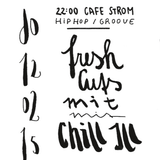 do
12
02
15
22:00 CAFE STROM
HIPHOP / GROOVE
fresh
cuts
mit
chill ill